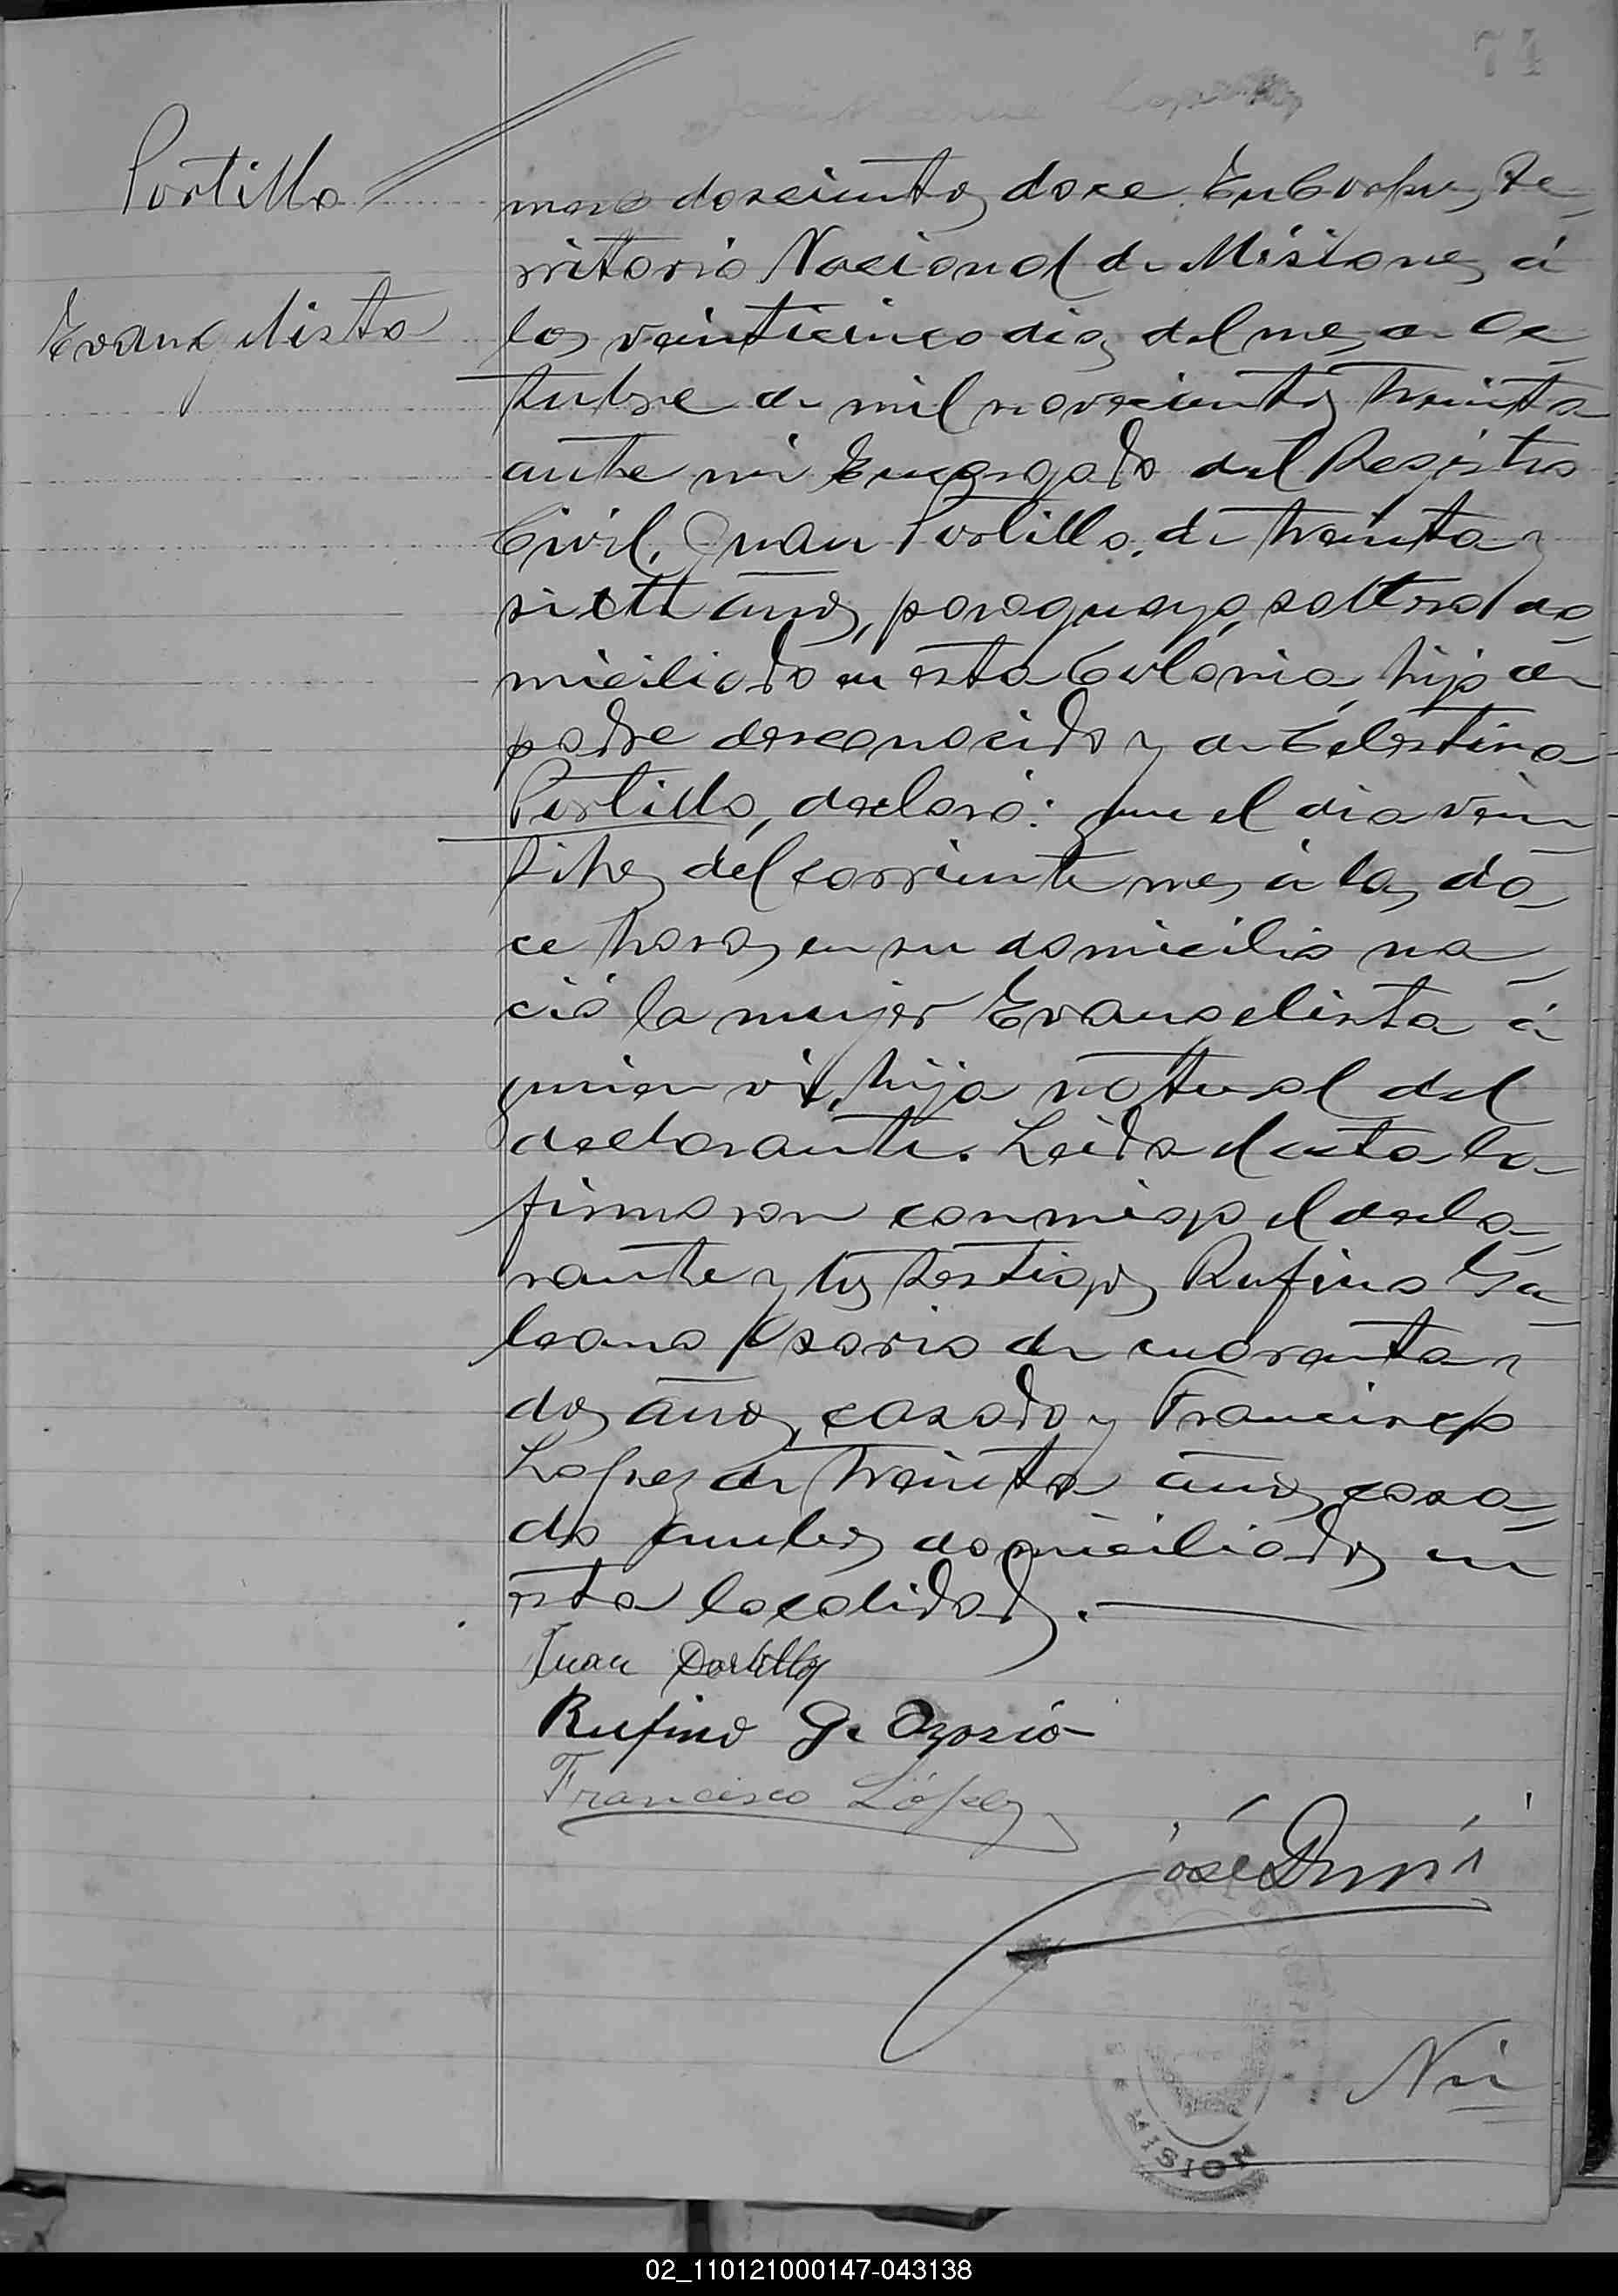 74
Portillo
Evangelista
mero doscientos doce. En Corpus, Te-
rritorio Nacional de Misiones, á
los veinticinco dias del mes de Oc-
tubre de mil novecientos treinta
ante mi Encargado del Registro
Civil, Juan Portillo, de treinta y
siete años, paraguayo, soltero, do-
miciliado en esta Colonia, hijo de
padre desconocido y de Celestina
Portillo, declaró: que el dia vein-
titres del corriente mes á las do-
ce horas en su domicilio na-
ció la mujer Evangelista á
quien vi, hija natural del
declarante. Leida el acta la
firmaron conmigo el decla-
rante y los testigos Rufino Ga-
leano Osorio de cuarenta y
dos años, casado y Francisco
Lopez de treinta años, casa-
do ambos domiciliados en
esta localidad.
Juan Portillo
Rufino G. Ozorio
Francisco López
José
Nú
MISION
02_110121000147-043138